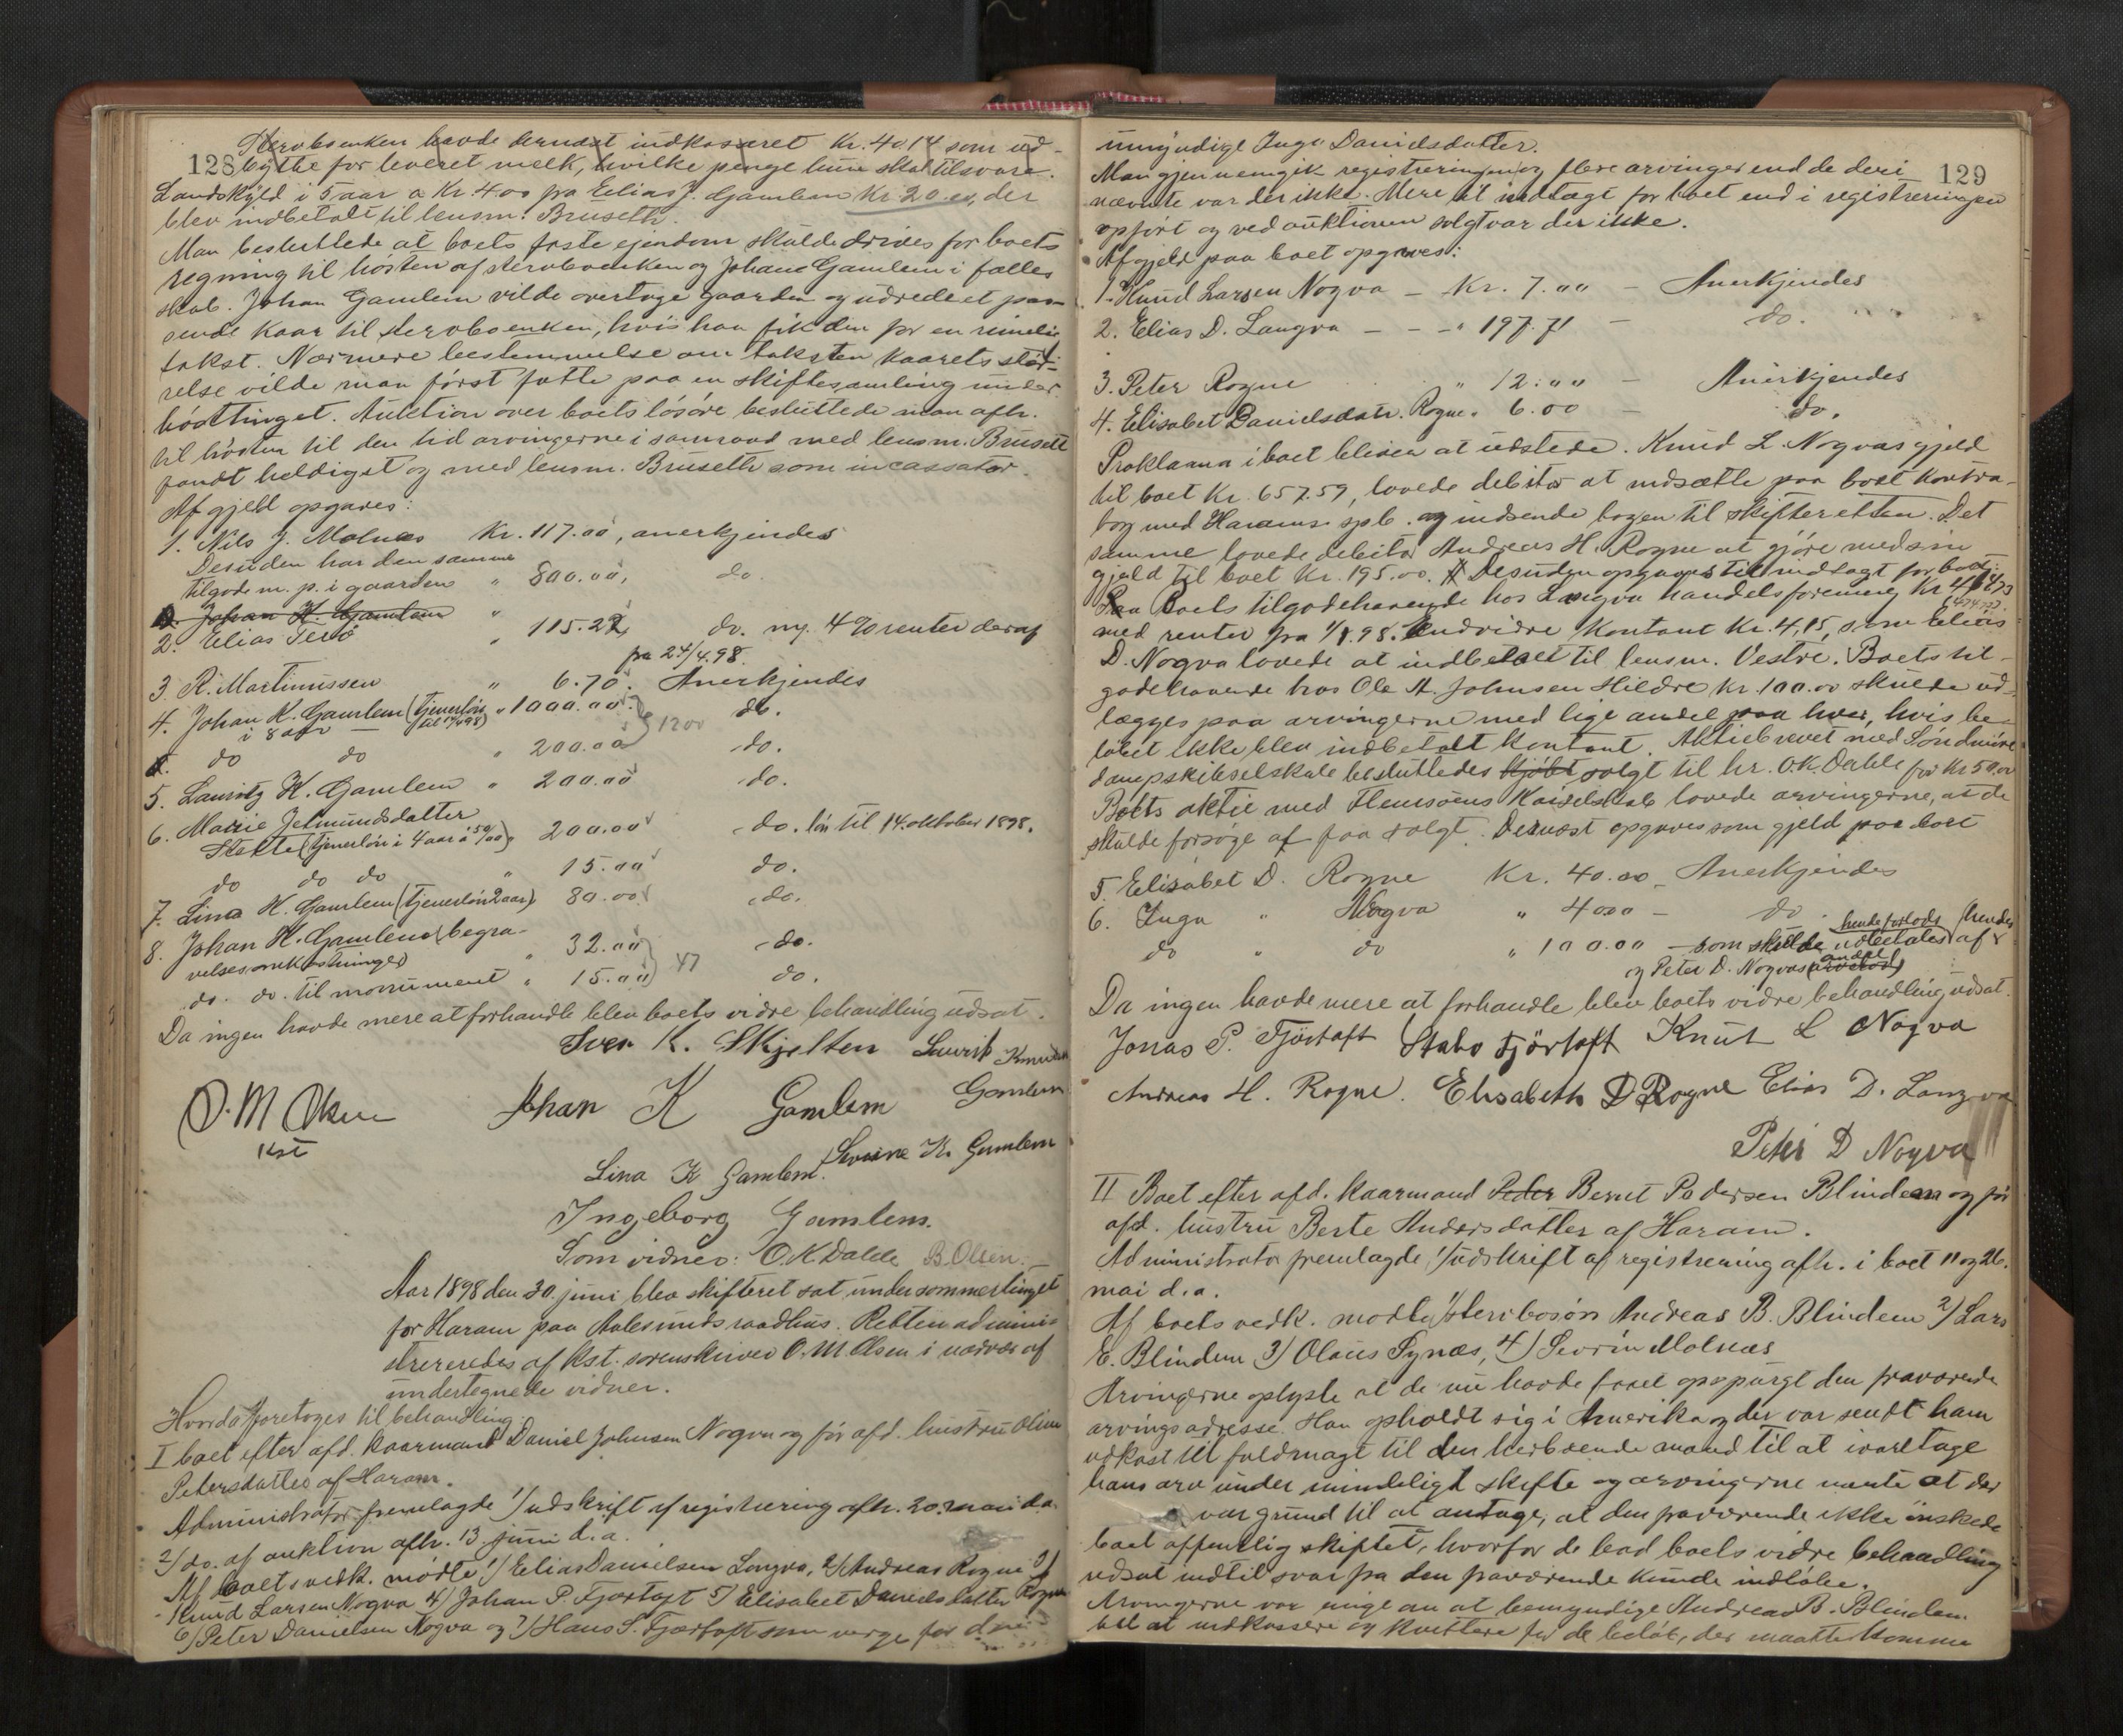 128
Stervboenken havde dernæst indkasseret Kr. 40.14 som ud-
bytte for leveret melk, hvilke penge hun skal tilsvare.
Landskyld i 5 aar a Kr. 4.00 fra Elias J. Gamlem Kr. 20.00, der
blev indbetalt til lensm. Bruseth.
Man besluttede at boets faste ejendom skulde drives for boets
regning til høsten af stervboenken og Johan Gamlem i fælles
skab. Johan Gamlem vilde overtage gaarden og udrede et pas-
sende kaar til stervboenken, hvis han fik den for en rimelig
takst. Nærmere bestemmelse om taksten kaarets stør-
relse vilde man først fatte paa en skiftesamling under
høsttinget. Auktion over boets løsøre besluttede man afh.
til høsten til den tid arvingerne i samraad med lensm. Bruseth
fandt heldigst og med lensm. Bruseth som incassator.
Af gjeld opgaves:
1. Nils J. Molnes Kr. 117.00, anerkjendes
Desuden har den samme
tilgode m. p. i gaarden " 800.00, do.
3. Johan K. Gamlem "
2. Elias Terø " 115.22, do. og 4% renter deraf
fra 24/4.98.
3. R. Martinussen " 6.70. Anerkjendes
4. Johan K. Gamlem (tjenerløn " 1000.00 do.
i 8 aar — til 14/4 98) 1200
do do " 200.00 do.
5. Lauritz K. Gamlem " 200.00 do.
6. Marie Jetmundsdatter
Skette (tjenerløn i 4 aar a 50/00) 200.00 do. løn til 14. oktober 1898.
do do do " 15.00 do.
7. Lina K. Gamlem (tjenerløn 2 aar) 80.00 do.
8. Johan K. Gamlem (begra-
velsesomkostninger) " 32.00 do.
47
do. do. til monument " 15.00 do.
Da ingen havde mere at forhandle blev boets vidre behandling udsat.
Sver K. Skjelten Laurits Knudsen
Gamlem
O. M Olsen Johan K Gamlem
kst
Lina K Gamlem. Severine K. Gamlem
Ingeborg Gamlem.
Som vidner: O. K Dahle B. Olsen.
Aar 1898 den 30. juni blev skifteret sat under sommertinget
for Haram paa Aalesunds raadhus. Retten admini-
strereredes af kst. sorenskriver O. M. Olsen i nærvær af
undertegnede vidner.
Hvorda foretoges til behandling:
I boet efter afd. kaarmand Daniel Johnsen Nogva og før afd. hustru Oline
Petersdatter af Haram.
Administrator fremlagde 1/ udskrift af registrering afh. 20. mai d.a.
2/ do. af auktion afh. 13. juni d. a.
Af boets vedk. mødte 1/ Elias Danielsen Longva, 2/ Andreas Rogne 3/
Knud Larsen Nogva 4/ Johan P. Fjørtoft 5/ Elisabet Danielsdatter Rogne
6/ Peter Danielsen Nogva og 7/ Hans S. Fjørtoft som verge for den
129
umyndige Inga Danielsdatter.
Man gjennemgik registreringen og flere arvinger end de deri
nævnte var der ikke. Mere til indtægt for boet end i registreringen
opført og ved auktionen solgt var der ikke.
Af gjeld paa boet opgaves:
1. Knud Larsen Nogva — Kr. 7.00 — Anerkjendes
2. Elias D. Langva — — " 197.71 — do.
3. Peter Rogne " 12.00 — Anerkjendes
4. Elisabet Danielsdatr. Rogne " 6.00 — do.
Proklama i boet bliver at udstede. Knud L. Nogvas gjeld
til boet Kr. 657.59, lovede debitor at indsætte paa boet kontra-
bog med Harams spb. og indsende bogen til skifteretten. Det
samme lovede debitor Andreas H. Rogne at gjøre med sin
gjeld til boet Kr. 195.00. Desuden opgaves til indtægt for boet:
Boets tilgodehavende hos Longva handelsforening Kr 474.73
474.73.
med renter fra 1/1.98. Endvidre kontant Kr. 4,15, som Elias
D. Nogva lovede at indbetalt til lensm. Vestre. Boets til-
godehavende hos Ole A. Johnsen Hildre Kr. 100.00 skulde ud-
lægges paa arvingerne med lige andel paa hver, hvis be-
løbet ikke blev indbetalt kontant. Aktiebrevet med Søndmøre
dampskibselskab besluttedes kjøbt solgt til hr. O. K. Dahle for Kr 50.00
Boets aktie med Flemsøens Kaiselskab lovede arvingerne, at de
skulde forsøge at faa solgt. Dernæst opgaves som gjeld paa boet
5. Elisabet D. Rogne Kr. 40.00 — Anerkjendes
6. Inga " Nogva " 40.00 — do.
do " do " 100.00 — som skulde udbetales af hendes
og Peter D. Nogvas andel
Da ingen havde mere at forhandle blev boets vidre behandling udsat.
Jonas P. Fjørtoft Knut L Nogva
Andreas H. Rogne. Elisabeth D Rogne Elias D. Longva
Peter D Nogva
II Boet efter afd. kaarmand Peder Bernt Pedersen Blindem og før
afd. hustru Berte Andersdatter af Haram.
Administrator fremlagde 1/ udskrift af registrering afh. i boet 11 og 26.
mai d. a.
Af boets vedk. mødte 1/ stervbosøn Andreas B. Blindem 2/ Lars
E. Blindem 3/ Olaus Synæs, 4/ Sevrin Molnæs
Arvingerne oplyste at de nu havde faaet opspurgt den fraværende
arvings adresse. Han opholdt sig i Amerika og der var sendt ham
udkast til fuldmagt til den herboende mand til at ivaretage
hans arv under mindeligt skifte og arvingerne mente at der
var grund til at antage, at den fraværende ikke ønskede
boet offentlig skiftet, hvorfor de bad boets vidre behandling
udsat indtil svar fra den fraværende kunde indløbe.
Arvingerne var enige om at bemyndige Andreas B. Blindem
til at indkassere og kvittere for de beløb, der maatte komme